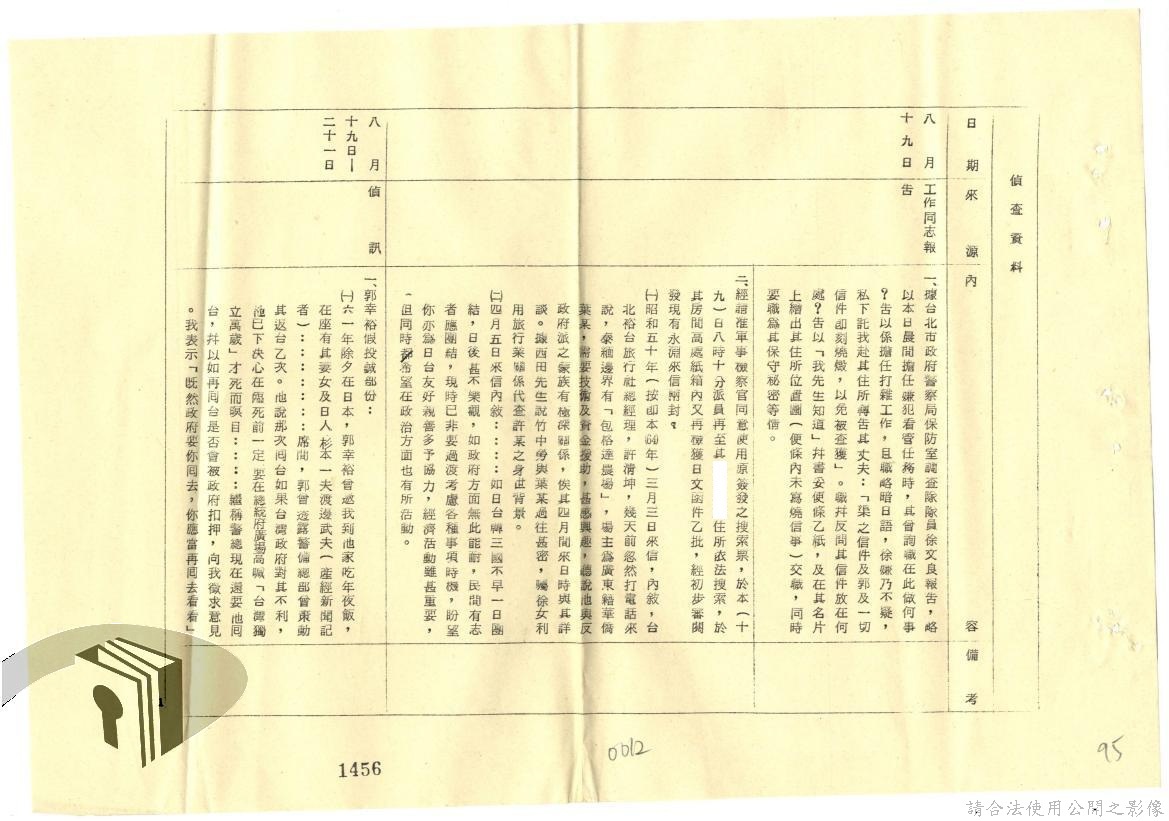 偵查資料
日期
來源
內容
備考
八月
十九日
工作同志報
告
一、據台北市政府警察局保防室調查隊隊員徐文良報告，略
以本日晨間擔任嫌犯看管任務時，其曾詢職在此做何事
？告以係擔任打雜工作，且職略暗日語，徐嫌乃不疑，
私下託我赴其住所轉告其丈夫：「渠之信件及郭及一切
信件即刻燒燬，以免被查獲」。職幷反問其信件放在何
處？告以「我先生知道」幷書妥便條乙紙，及在其名片
上繪出其住所位置圖（便條內未寫燒信事）交職，同時
要職為其保守秘密等情。
二、經請准軍事檢察官同意使用原簽發之搜索票，於本（十
九）日八時十分派員再至其 住所依法搜索，於
其房間高處紙箱內又再檢獲日文函件乙批，經初步審閱
發現有永淵來信兩封。
㈠昭和五十年（按即本64年）三月三日來信，內敘，台
北裕台旅行社總經理，許清坤，幾天前忽然打電話來
說，泰緬邊界有「包格達農場」，場主為廣東籍華僑
葉某，需要技術及資金援助，甚感興趣，聽說他與反
政府派之蒙族有極深關係，俟其四月間來日時與其詳
談。據西田先生說竹中勞與葉某過往甚密，囑徐女利
用旅行業關係代查許某之身世背景。
㈡四月五日來信內敘：：：：如日台韓三國不早一日團
結，日後甚不樂觀，如政府方面無此能耐，民間有志
者應團結，現時已非要過渡考慮各種事項時機，盼望
你亦為日台友好親善多予協力，經濟活動雖甚重要，
但同時都希望在政治方面也有所活動。
八月
十九日—
二十一日
偵訊
一、郭幸裕假投誠部份：
㈠六一年除夕在日本，郭幸裕曾邀我到他家吃年夜飯，
在座有其妻女及日人杉本一夫渡邊武夫（產經新聞記
者）：：：：：：：席間，郭曾透露警備總部曾策動
其返台乙次。他說那次囘台如果台灣政府對其不利，
他已下決心在臨死前一定要在總統府廣場高喊「台灣獨
立萬歲」才死而瞑目：：：：繼稱警總現在還要他囘
台，幷以如再囘台是否會被政府扣押，向我徵求意見
。我表示「既然政府要你囘去，你應當再囘去看看」
1456
0012
95
請合法使用公開之影像